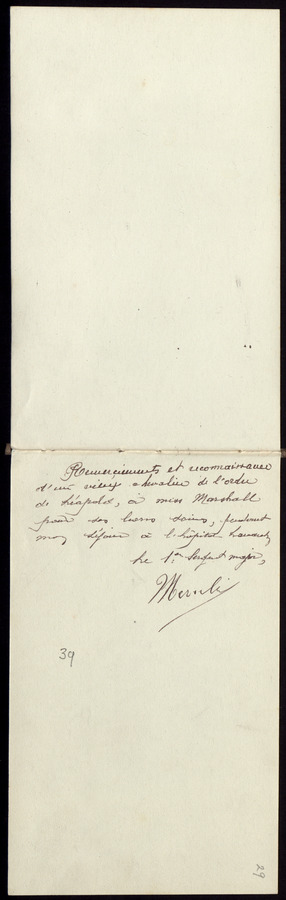 Remerciements et reconnaissance
d'un vieux chevalier de l'ordre
de Léopold, à miss Marshall
pour ses bons soins, pendant
mon séjour à l'hôpital
Le 1er Sergent major,
39
29